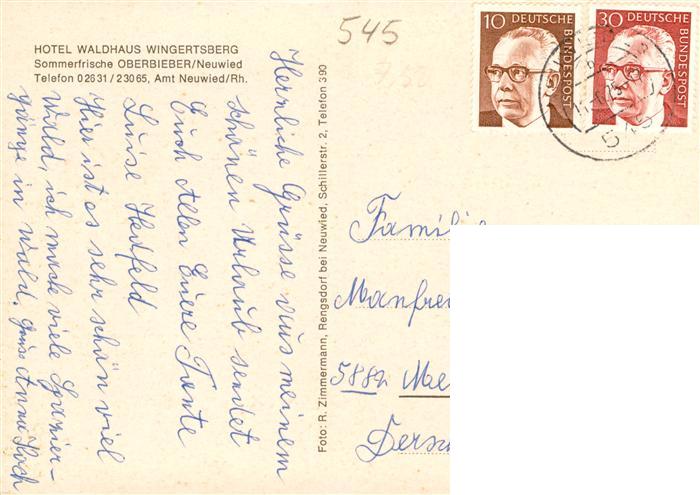 545
HOTEL WALDHAUS WINGERTSBERG
Sommerfrische OBERBIEBER/Neuwied
Telefon 02631/23065, Amt Neuwied/Rh.
Herrliche Grüsse aus meinem
schönen Urlaub sendet
Euch Allen Euere Tante
Luise Hedfeld
Hier ist es sehr schön viel
Wald, ich mache viele Spazier-
gänge in Wald. Gruss Anna Koch
Foto: R. Zimmermann, Rengsdorf bei Neuwied, Schillerstr. 2, Telefon 390
10 DEUTSCHE BUNDESPOST
30 DEUTSCHE BUNDESPOST
Famili
Manfre
5882 Me
Dersch